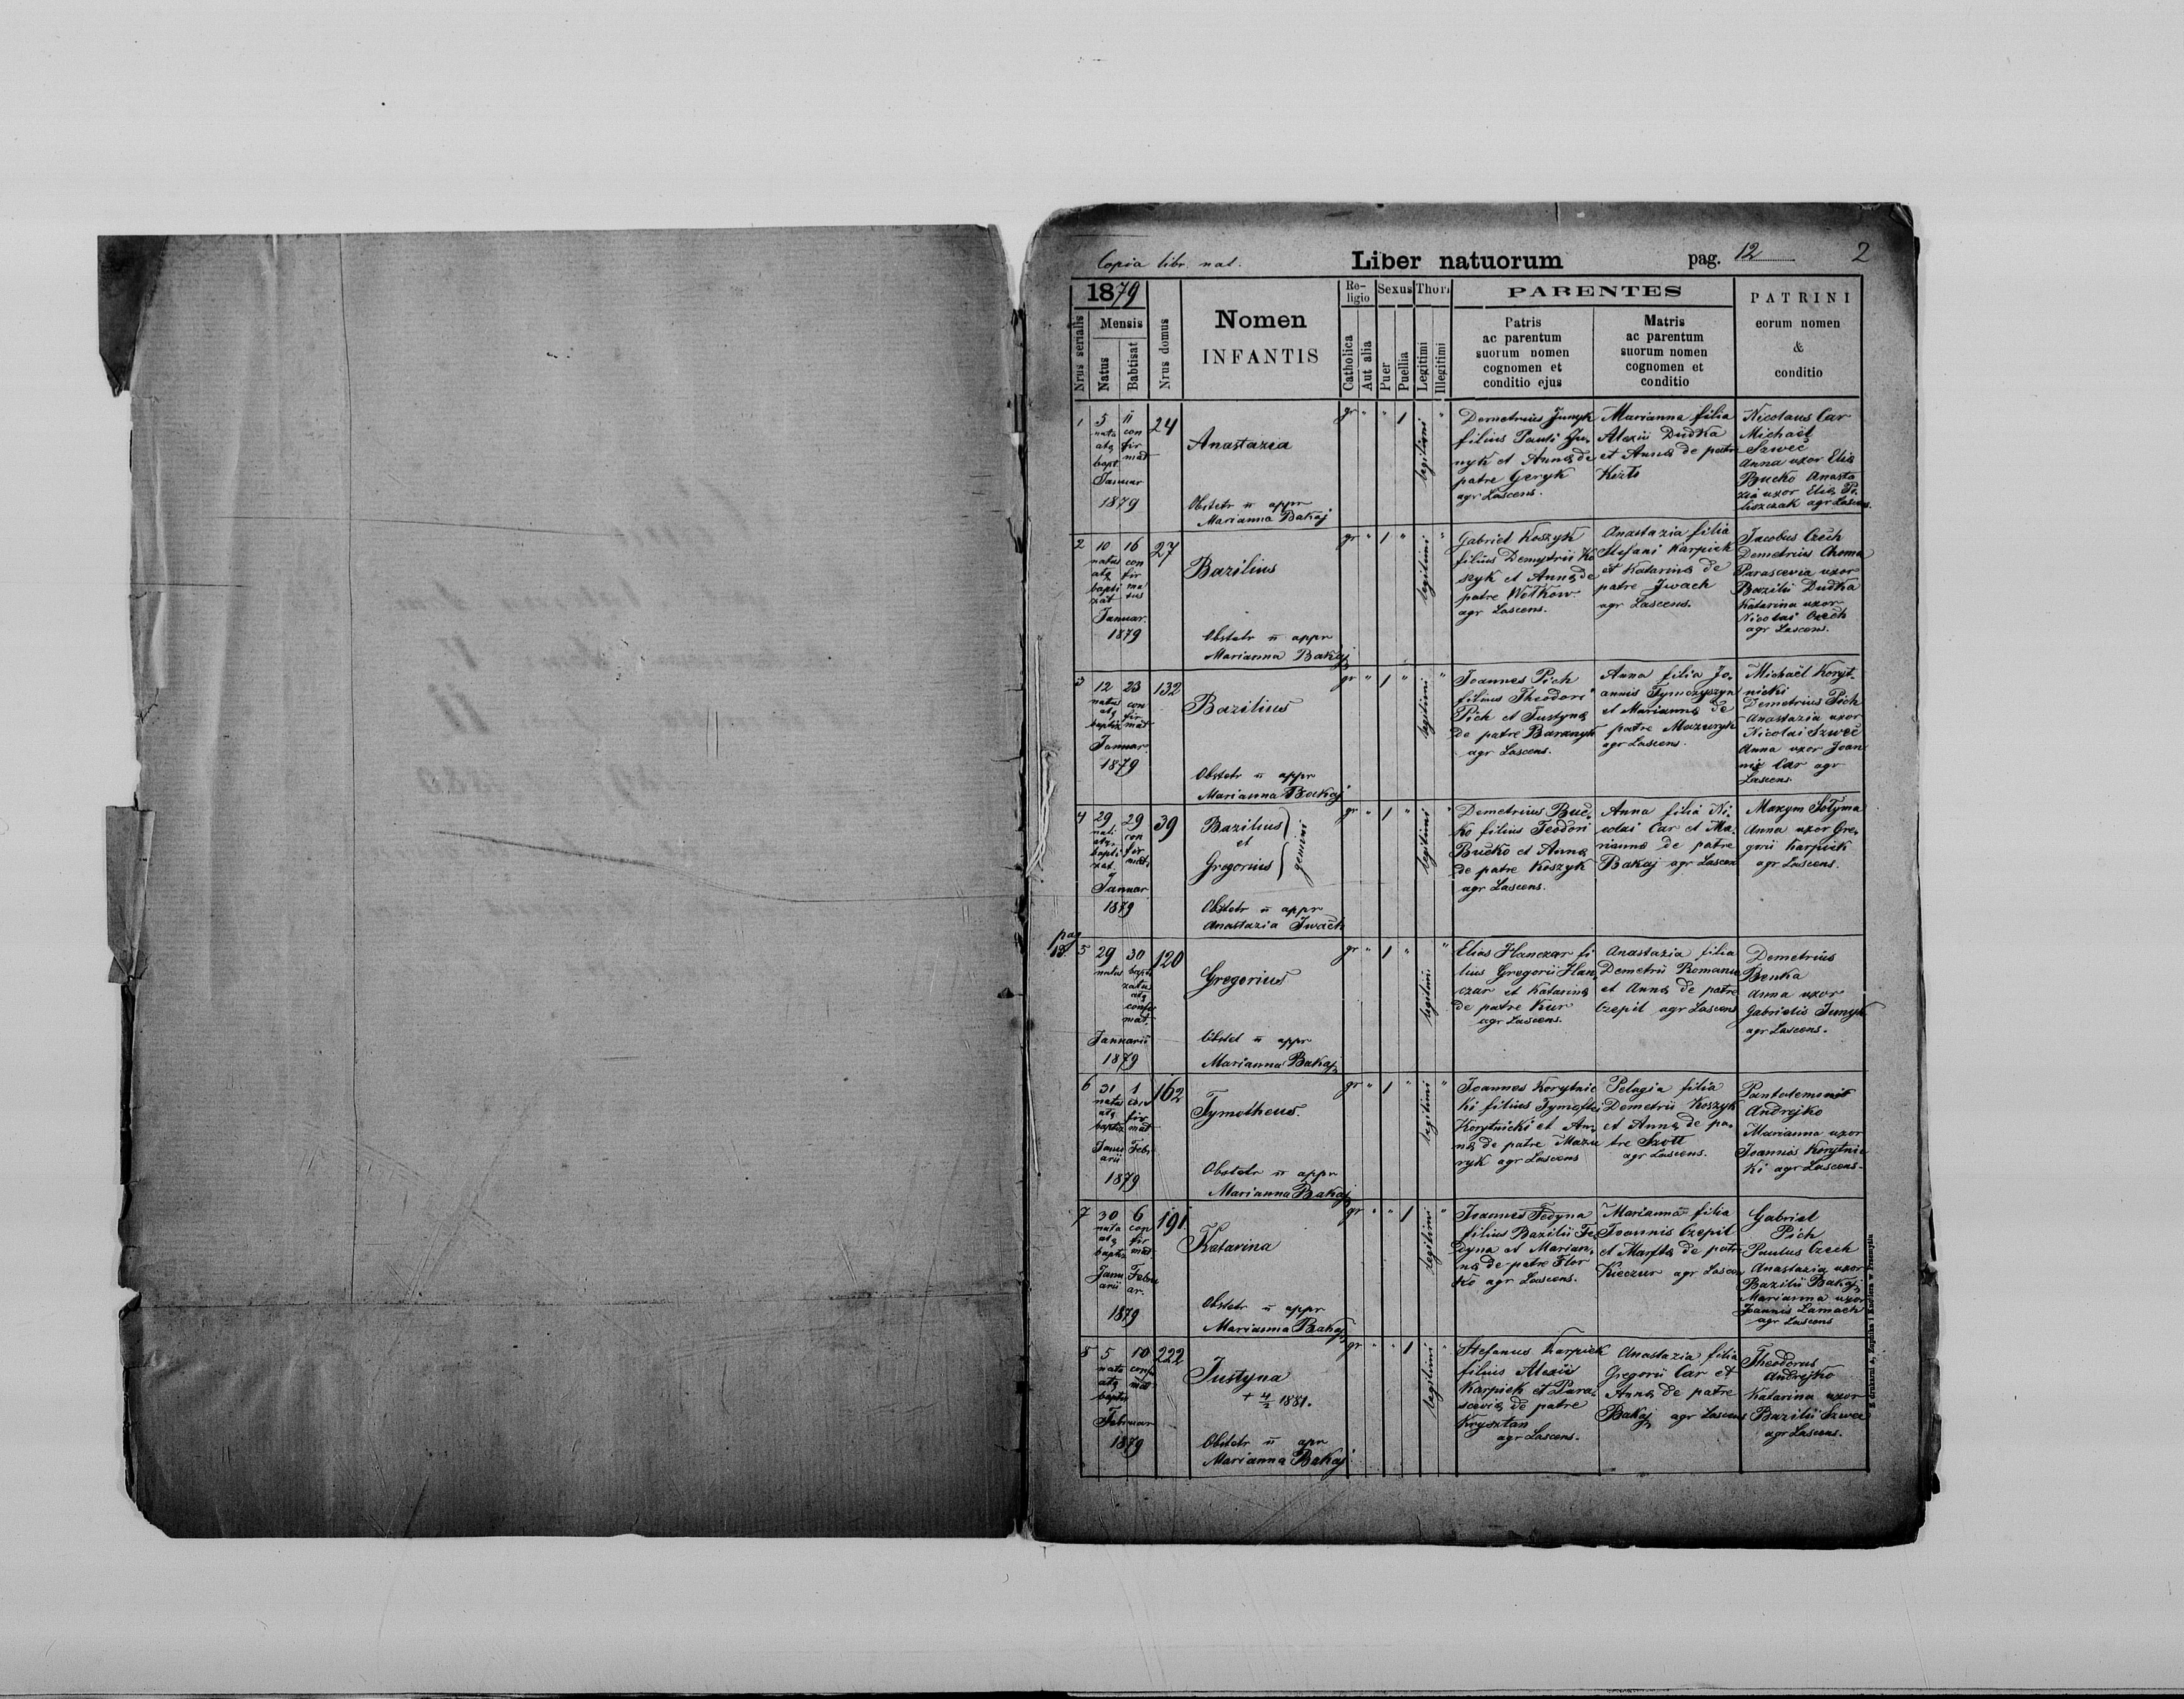 Copia libr. nat.
Liber natuorum
pag. 12
2
1879
Nrus serialis
Mensis
Natus
Babtisat
Nrus domus
Nomen
INFANTIS
Re-
ligio
Catholica
Aut alia
Sexus
Puer
Puella
Thori
Legitimi
Illegitimi
PARENTES
Patris
ac parentum
suorum nomen
cognomen et
conditio ejus
Matris
ac parentum
suorum nomen
cognomen et
conditio
PATRINI
eorum nomen
&
conditio
1
5 11
nata con
atq fir
bapt. mat
Januar
1879
24
Anastazia
Obstetr n appr
Marianna Bakaj
gr " " 1 legitimi "
Demetrius Junyk
filius Pauli Ju-
nyk et Annae de
patre Geryk
agr Lascens.
Marianna filia
Alexii Dudka
et Annae de patre
Nicolaus Car
Michaël
Szweć
Anna uxor Eliae
Bucko Anasta
zia uxor Eliae Po-
liszczak agr Lascens.
2
10 16
natus con
atq fir
bapti ma
zat tus
Januar.
1879
27
Bazilius
Obstetr n appr
Marianna Bakaj
gr " 1 " legitimi "
Gabriel Koszyk
filius Demetrii Ko
szyk et Annae de
patre Wołkow
agr Lascens.
Anastazia filia
Stefani Karpiek
et Katarinae de
patre Iwach
agr Lascens.
Jacobus Czech
Demetrius Choma
Parascevia uxor
Bazilii Dudka
Katarina uxor
Nicolai Czech
agr Lascens.
3
12 23
natus con
atq fir
baptiz mat
Januar
1879
132
Bazilius
Obstetr n appr
Marianna Bakaj
gr " 1 " legitimi "
Joannes Pich
filius Theodori
Pich et Justynae
de patre Baranyk
agr Lascens.
Anna filia Jo-
annis Tymczyszyn
et Mariannae de
patre Mazuryk
agr Lascens.
Michaël Koryt-
nicki
Demetrius Pich
Anastazia uxor
Nicolai Szweć
Anna uxor Joan
nis Car agr
Lascens.
4
29 29
nati con
atq fir
bapti mati
zat.
Januar
1879
39
Bazilius
et
Gregorius
gemini
Obstetr n appr
Anastazia Iwach
gr " 1 " legitimi "
Demetrius Buc-
ko filius Teodori
Bucko et Annae
de patre Koszyk
agr Lascens.
Anna filia Ni-
colai Car et Ma-
riannae de patre
Bakaj agr Lascen
Maxym Sołyma
Anna uxor Gre-
gorii Karpiek
agr Lascens.
pag
13.
5
29 30
natus bapti
zatus
atq
confir
mat.
Januarii
1879
120
Gregorius
Obstet n appr
Marianna Bakaj
gr " 1 " legitimi "
Elias Hanczar fi
lius Gregorii Han
czar et Katarinae
de patre Kur
agr Lascens.
Anastazia filia
Demetrii Romaniu
et Annae de patre
Czepil agr Lascens
Demetrius
Benka
Anna uxor
Gabrielis Junyk
agr Lascens.
6
31 1
natus con
atq fir
baptiz mat
Janu Febr
arii
1879
162
Tymotheus.
Obstetr n appr
Marianna Bakaj
gr " 1 " legitimi "
Joannes Korytnic
ki filius Tymoftei
Korytnicki et An-
nae de patre Mazu
ryk agr Lascens
Pelagia filia
Demetrii Koszyk
et Annae de pa-
tre Szott
agr Lascens.
Pantotemont
Andrejko
Marianna uxor
Joannis Korytnic
ki agr Lascens.
7
30 6
nata con
atq fir
baptiz mat
Janu Febru
arii ar.
1879
191.
Katarina
Obstetr n appr
Marianna Bakaj
gr " " 1 legitimi "
Joannes Fedyna
filius Bazilii Fe
dyna et Marian-
nae de patre Flor
ko agr Lascens.
Marianna filia
Joannis Czepil
et Marftae de patre
Kieczur agr Lascen
Gabriel
Pich
Paulus Czech
Anastazia uxor
Bazilii Bakaj
Marianna uxor
Joannis Lamach
agr Lascens
8
5 10
nata confir
atq mat
baptiz
Februar
1879
222
Justyna
+ 4/2 1881.
Obstetr n apr
Marianna Bakaj
gr " " 1 legitimi "
Stefanus Karpiek
filius Alexii
Karpiek et Para
sceviae de patre
Krysztan
agr Lascens.
Anastazia filia
Gregorii Car et
Annae de patre
Bakaj agr Lascens
Theodorus
Andrejko
Katarina uxor
Bazilii Szwec
agr Lascens.